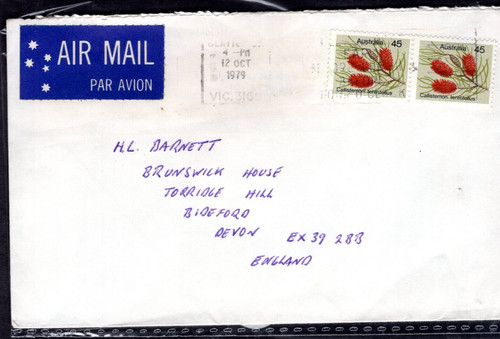 AIR MAIL
PAR AVION
4 - PM
12 OCT
1979
VIC. 3150
Australia 45
Callistemon teretifolius
Australia 45
Callistemon teretifolius
H.L. BARNETT
BRUNSWICK HOUSE
TORRIDGE HILL
BIDEFORD
DEVON EX39 2BB
ENGLAND